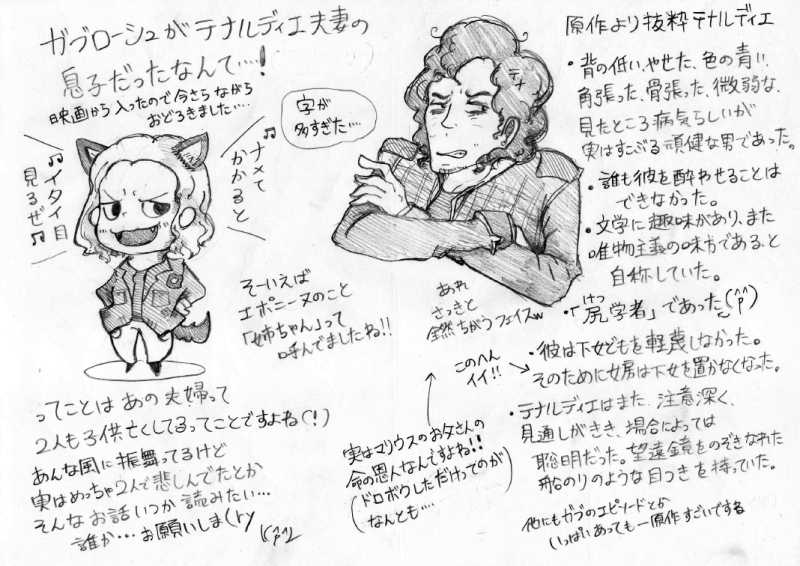 ガブローシュがテナルディエ夫妻の
息子だったなんて…!
映画から入ったので今さらながら
おどろきました…
字が
多すぎた…
♪ナメて
かかると
♪イタイ目
見るぜ♪
そーいえば
エポニーヌのこと
「姉ちゃん」って
呼んでましたね!!
ってことは あの夫婦って
2人も子供亡くしてるってことですよね(!)
あんな風に振舞ってるけど
実はめっちゃ2人で悲しんでたとか
そんなお話いつか読みたい…
誰か…お願いしま(ry
テナ
あれ
さっきと
全然ちがうフェイスw
このへん
イイ!!
実はマリウスのお父さんの
命の恩人なんですよね!!
(ドロボウしただけってのが
なんとも…)
原作より抜粋テナルディエ
・背の低い、やせた、色の青い、
角張った、骨張った、微弱な、
見たところ病気らしいが
実はすこぶる頑健な男であった。
・誰も彼を酔わせることは
できなかった。
・文学に趣味があり、また
唯物主義の味方であると
自称していた。
・「尻学者」であった(^p^)
けつ
・彼は下女どもを軽蔑しなかった。
そのために女房は下女を置かなくなった。
・テナルディエはまた、注意深く、
見通しがきき、場合によっては
聡明だった。望遠鏡をのぞきなれた
船のりのような目つきを持っていた。
他にもガブのエピソードとか
いっぱいあってもー原作すごいでする